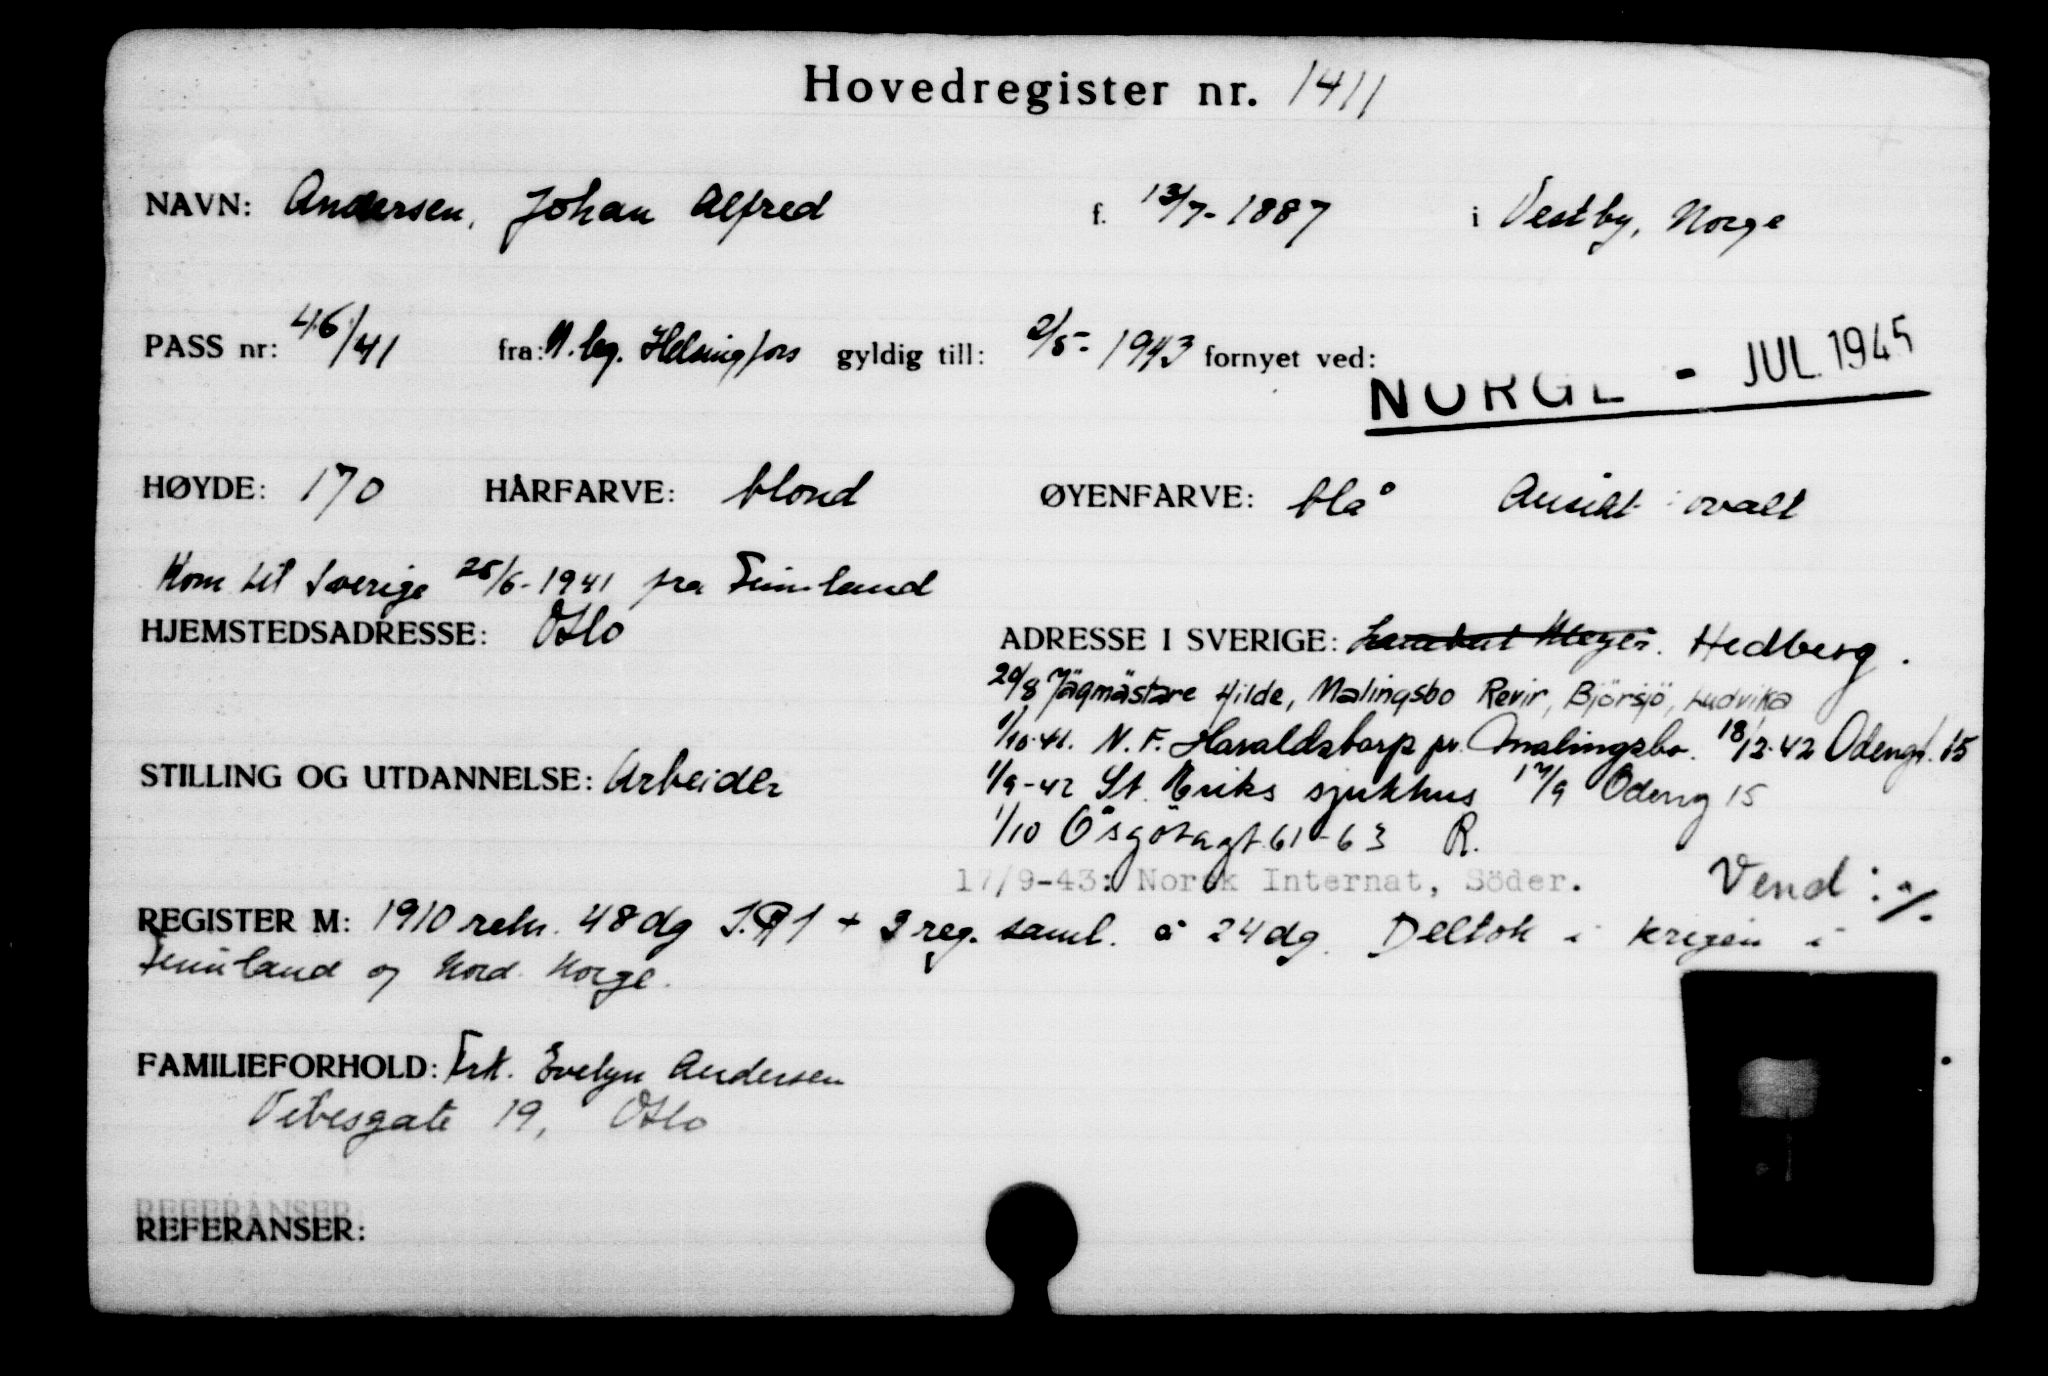 Hovedregister nr. 1411
NAVN: Andersen, Johan Alfred f. 13/7-1887 i Vestby, Norge
PASS nr: 46/41 fra: N. leg. Helsingfors gyldig till: 2/5-1943 fornyet ved:
NORGE - JUL. 1945
HØYDE: 170 HÅRFARVE: blond ØYENFARVE: blå Ansikt: ovalt
Kom til Sverige 25/6-1941 fra Finnland
HJEMSTEDSADRESSE: Oslo
ADRESSE I SVERIGE: Hedberg.
20/8 Jägmästare Hilde, Malingsbo Revir, Björsjö, Ludvika
1/10-41. N. F. Haraldstorp pr. Malingsbo. 18/2-42 Odengt. 15
STILLING OG UTDANNELSE: Arbeider
1/9-42 St. Eriks sjukhus 17/9 Odeng 15
1/10 Ösgötagt. 61-63 R.
17/9-43: Norsk Internat, Söder.
Vend :/.
REGISTER M: 1910 rekr. 48 dg I.R. 1 + 3 reg. saml. à 24 dg. Deltok i krigen i
Finnland og Nord Norge.
FAMILIEFORHOLD: Frk. Evelyn Andersen
Vibesgate 19, Oslo
REFERANSER
REFERANSER: